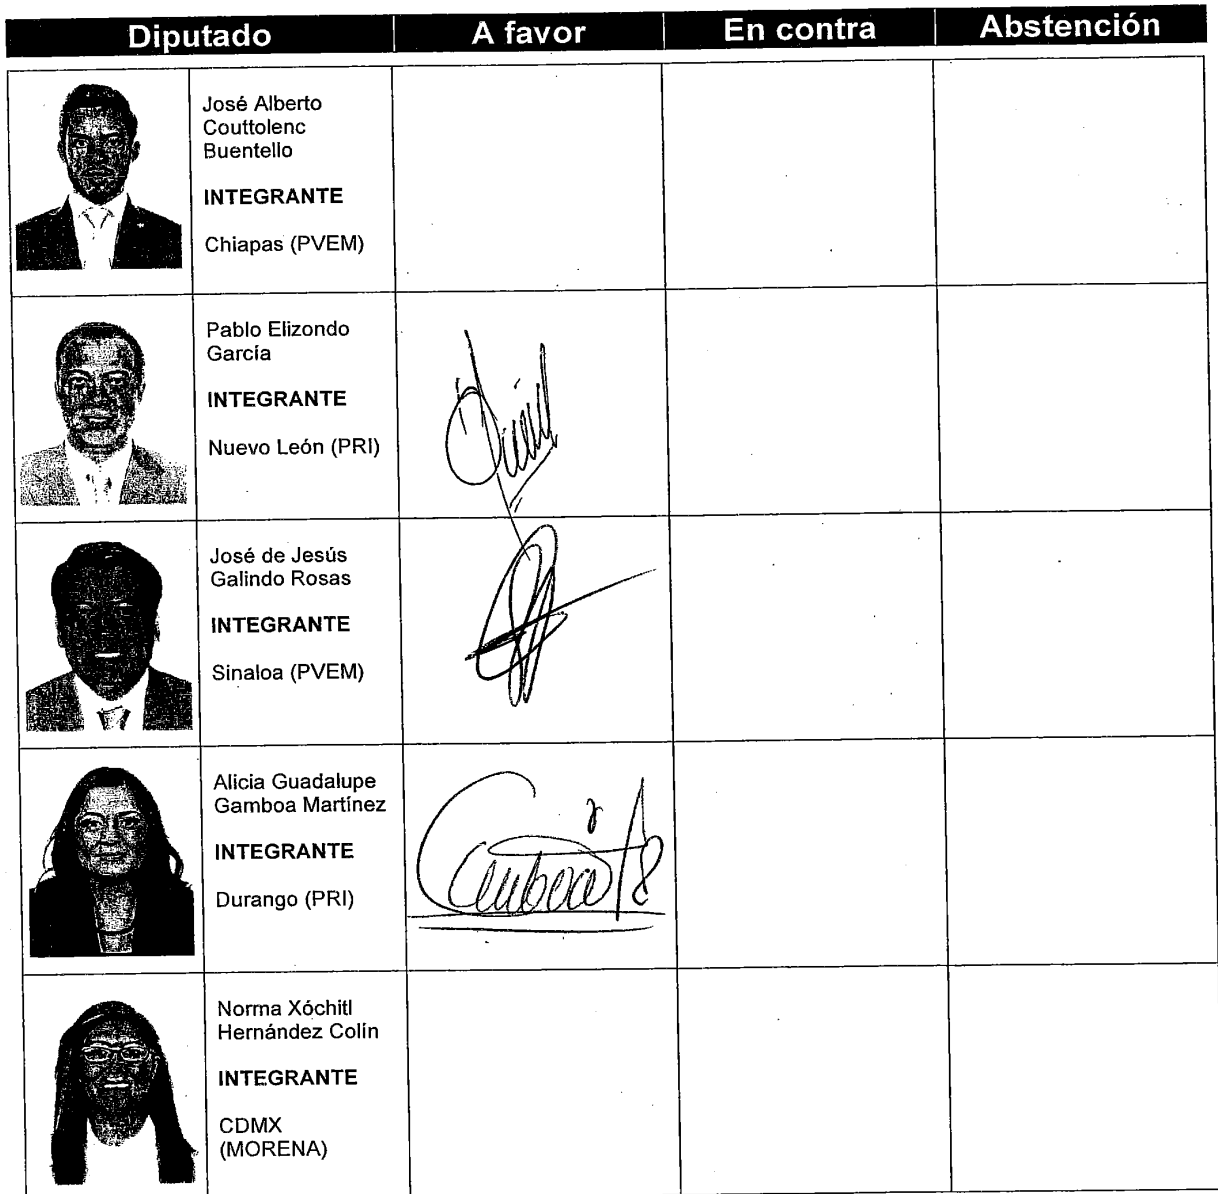 Diputado A favor En contra Abstención
José Alberto
Couttolenc
Buentello
INTEGRANTE
Chiapas (PVEM)
Pablo Elizondo
García
INTEGRANTE
Nuevo León (PRI)
José de Jesús
Galindo Rosas
INTEGRANTE
Sinaloa (PVEM)
Alicia Guadalupe
Gamboa Martínez
INTEGRANTE
Durango (PRI)
Norma Xóchitl
Hernández Colín
INTEGRANTE
CDMX
(MORENA)